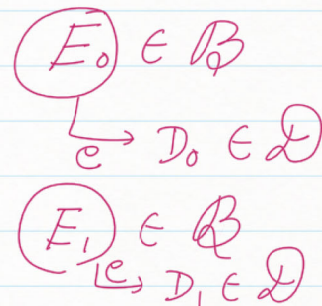 E₀ ∈ ℬ
e → D₀ ∈ 𝒟
E₁ ∈ ℬ
e → D₁ ∈ 𝒟